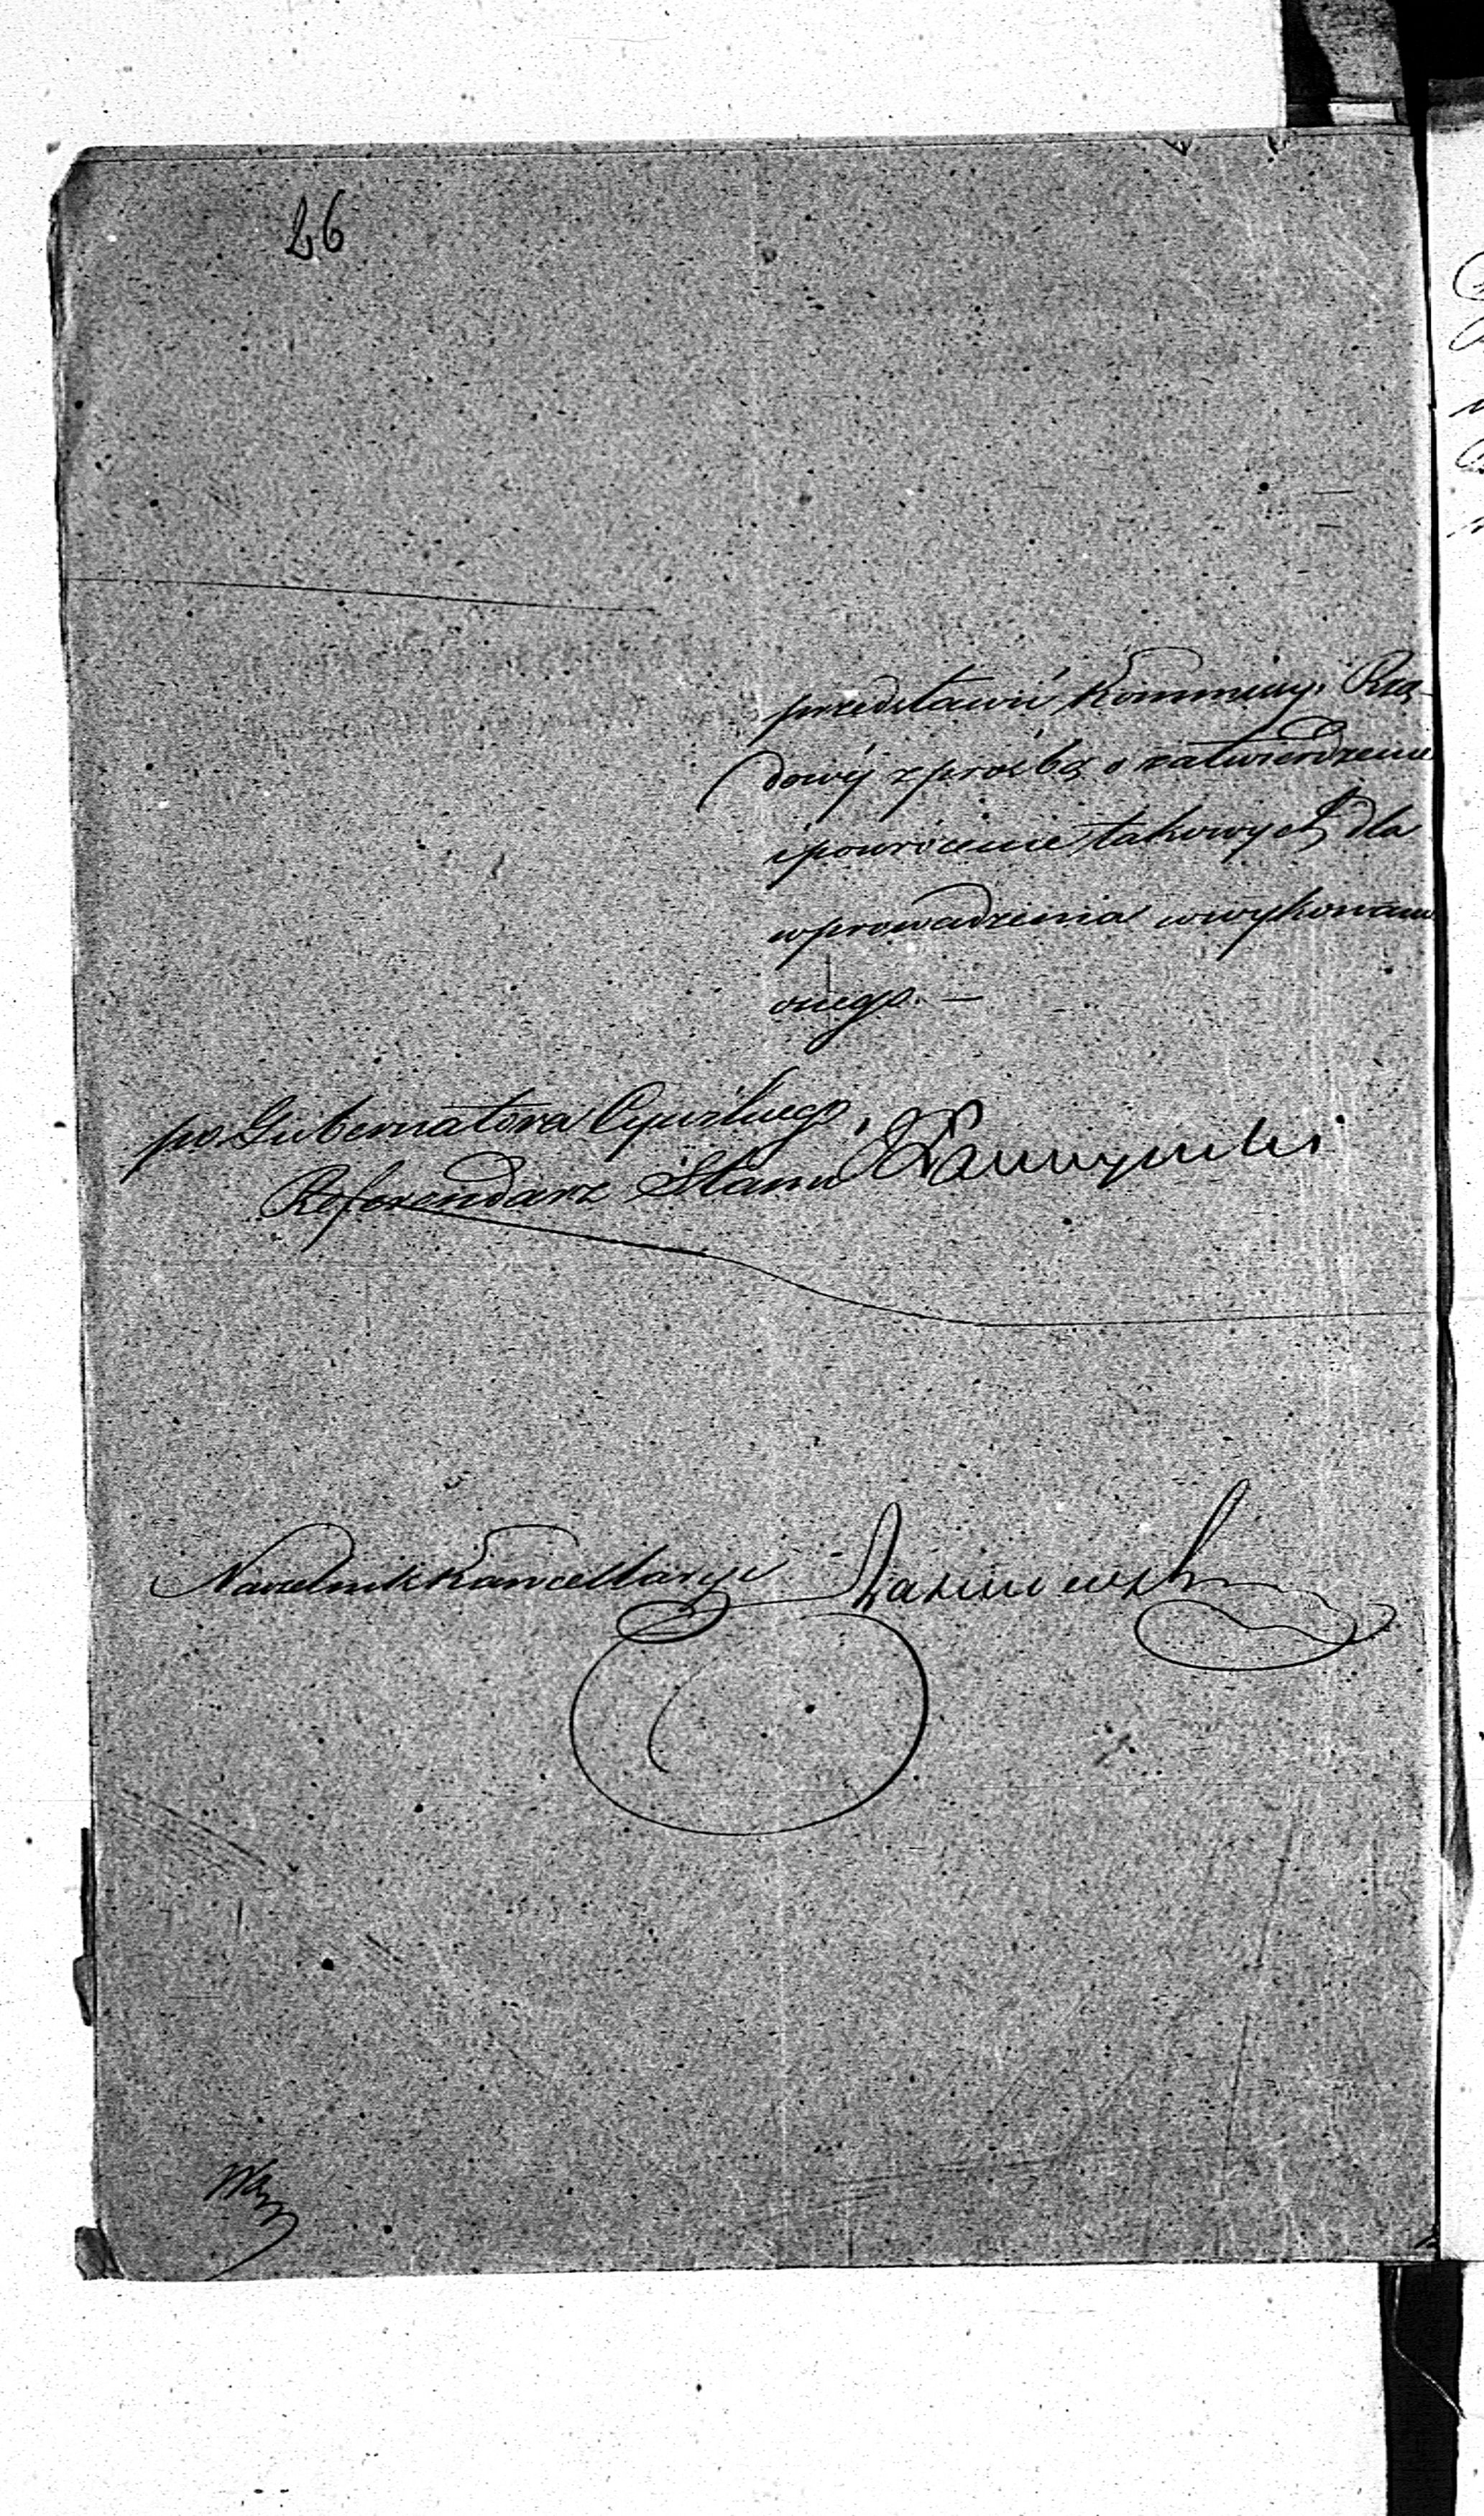 26
przedstawić Kommissyi Rzą
dowéj z prośbą o zatwierdzenie
i powrócenie takowych dla
wprowadzenia w wykonanie
onego. —
po. Gubernatora Cywilnego,
Referendarz Stanu
Naczelnik Kancellaryi